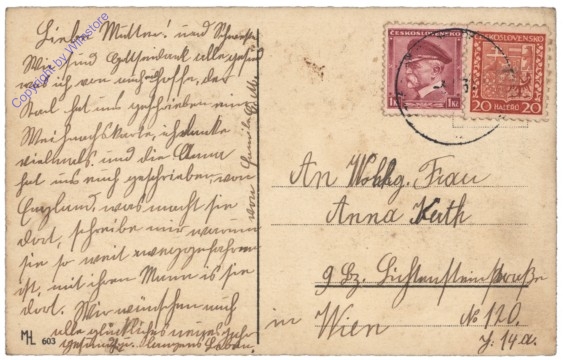 Liebe Mutter! und Schwester
Wir sind Gottseidank alle gesund
was ich von euch hoffe, der
Karl hat uns geschrieben eine
Weihnachtskarte, ich danke
vielmals und die Anna
hat uns auch geschrieben, von
England, was macht sie
dort, schreibe uns warum
sie so weit weggefahren
ist, mit ihren Mann is sie
dort. Wir wünschen euch
alle glückliches neues Jahr
ganzes Leben.
von
ČESKOSLOVENSKO
1 Kč
ČESKOSLOVENSKO
20 HALÉŘŮ 20
An Wohlg. Frau
Anna Kath
9 Bz. Lichtensteinstraße
in Wien No 120.
T. 14a.
MHL 603
Copyright by Wildstore